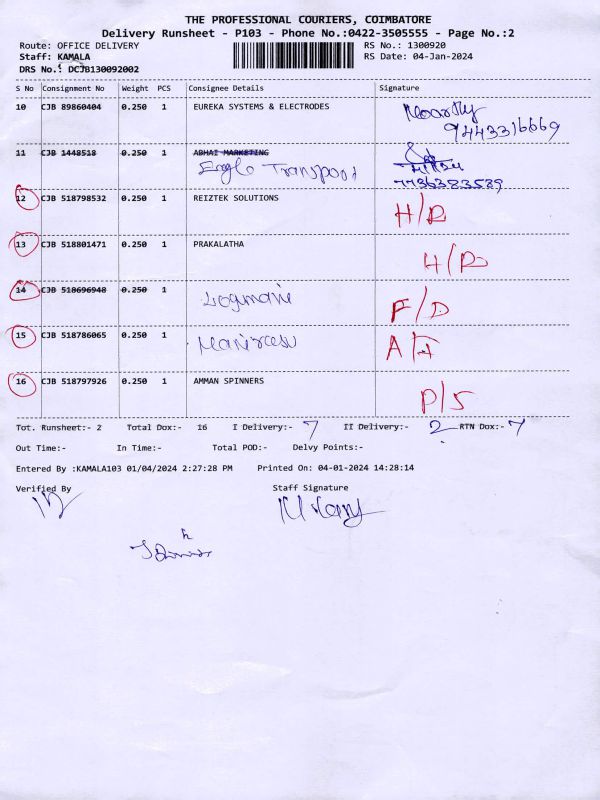 THE PROFESSIONAL COURIERS, COIMBATORE
Delivery Runsheet - P103 - Phone No.:0422-3505555 - Page No.:2
Route: OFFICE DELIVERY RS No.: 1300920
Staff: KAMALA RS Date: 04-Jan-2024
DRS No.: DCJB130092002
S No Consignment No Weight PCS Consignee Details Signature
10 CJB 89860404 0.250 1 EUREKA SYSTEMS & ELECTRODES
9443316669
11 CJB 1448518 0.250 1 ABHAI MARKETING
Eagle Transport
7736383589
12 CJB 518798532 0.250 1 REIZTEK SOLUTIONS H/D
13 CJB 518801471 0.250 1 PRAKALATHA H/D
14 CJB 518696948 0.250 1 Logumani F/D
15 CJB 518786065 0.250 1 A/H
16 CJB 518797926 0.250 1 AMMAN SPINNERS P/S
Tot. Runsheet:- 2 Total Dox:- 16 I Delivery:- 7 II Delivery:- 2 RTN Dox:- 7
Out Time:- In Time:- Total POD:- Delvy Points:-
Entered By :KAMALA103 01/04/2024 2:27:28 PM Printed On: 04-01-2024 14:28:14
Verified By Staff Signature